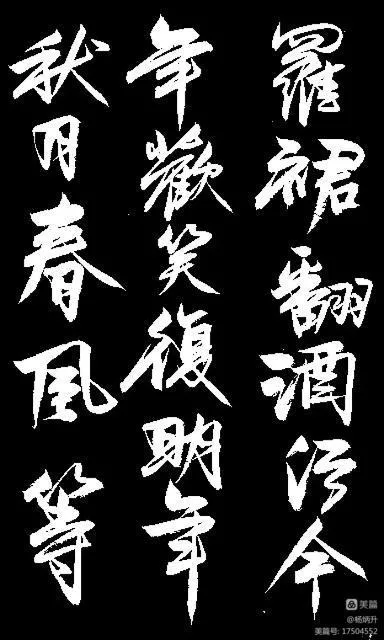 羅裙翻酒污今
年歡笑復明年
秋月春風等
美篇
@杨炳升
美篇号: 17504552